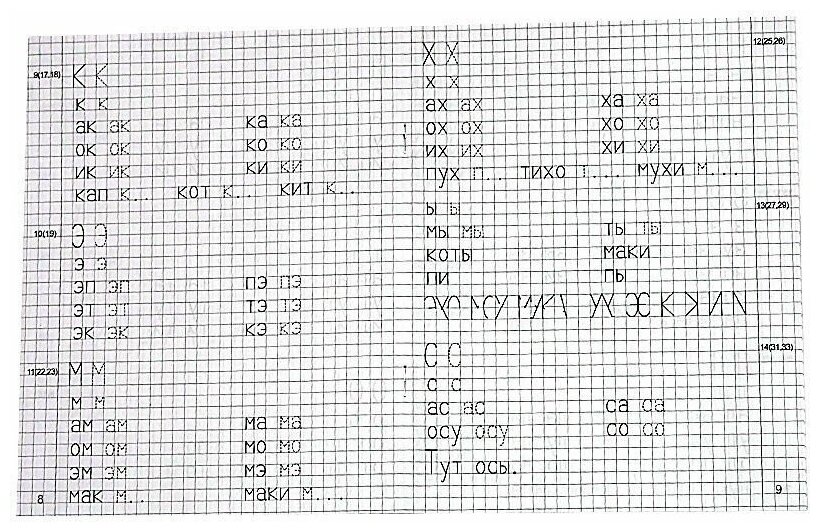 9(17,18)
К К
к к
ак ак ка ка
ок ок ко ко
ик ик ки ки
кап к... кот к... кит к...
10(19)
Э Э
э э
эп эп пэ пэ
эт эт тэ тэ
эк эк кэ кэ
11(22,23)
М М
м м
ам ам ма ма
ом ом мо мо
эм эм мэ мэ
мак м... маки м...
8
12(25,26)
Х Х
х х
ах ах ха ха
ох ох хо хо
их их хи хи
пух п... тихо т.... мухи м....
13(27,29)
ы ы
мы мы ты ты
коты маки
пи пы
14(31,33)
С С
с с
ас ас са са
осу осу со со
Тут осы.
9